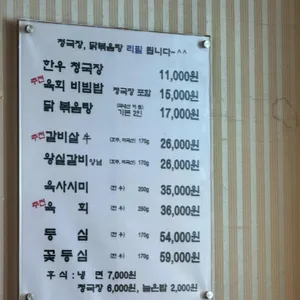 청국장, 닭볶음탕 리필 됩니다~^^
한우 청국장 11,000원
추천 육회 비빔밥 청국장 포함 15,000원
닭 볶음탕 기본 2인 17,000원
추천 갈비살 牛 170g 26,000원
왕실갈비 양념 170g 26,000원
육사시미 200g 35,000원
추천 육 회 250g 36,000원
등 심 170g 54,000원
꽃등심 170g 59,000원
후식 : 냉 면 7,000원
청국장 6,000원, 눌은밥 2,000원